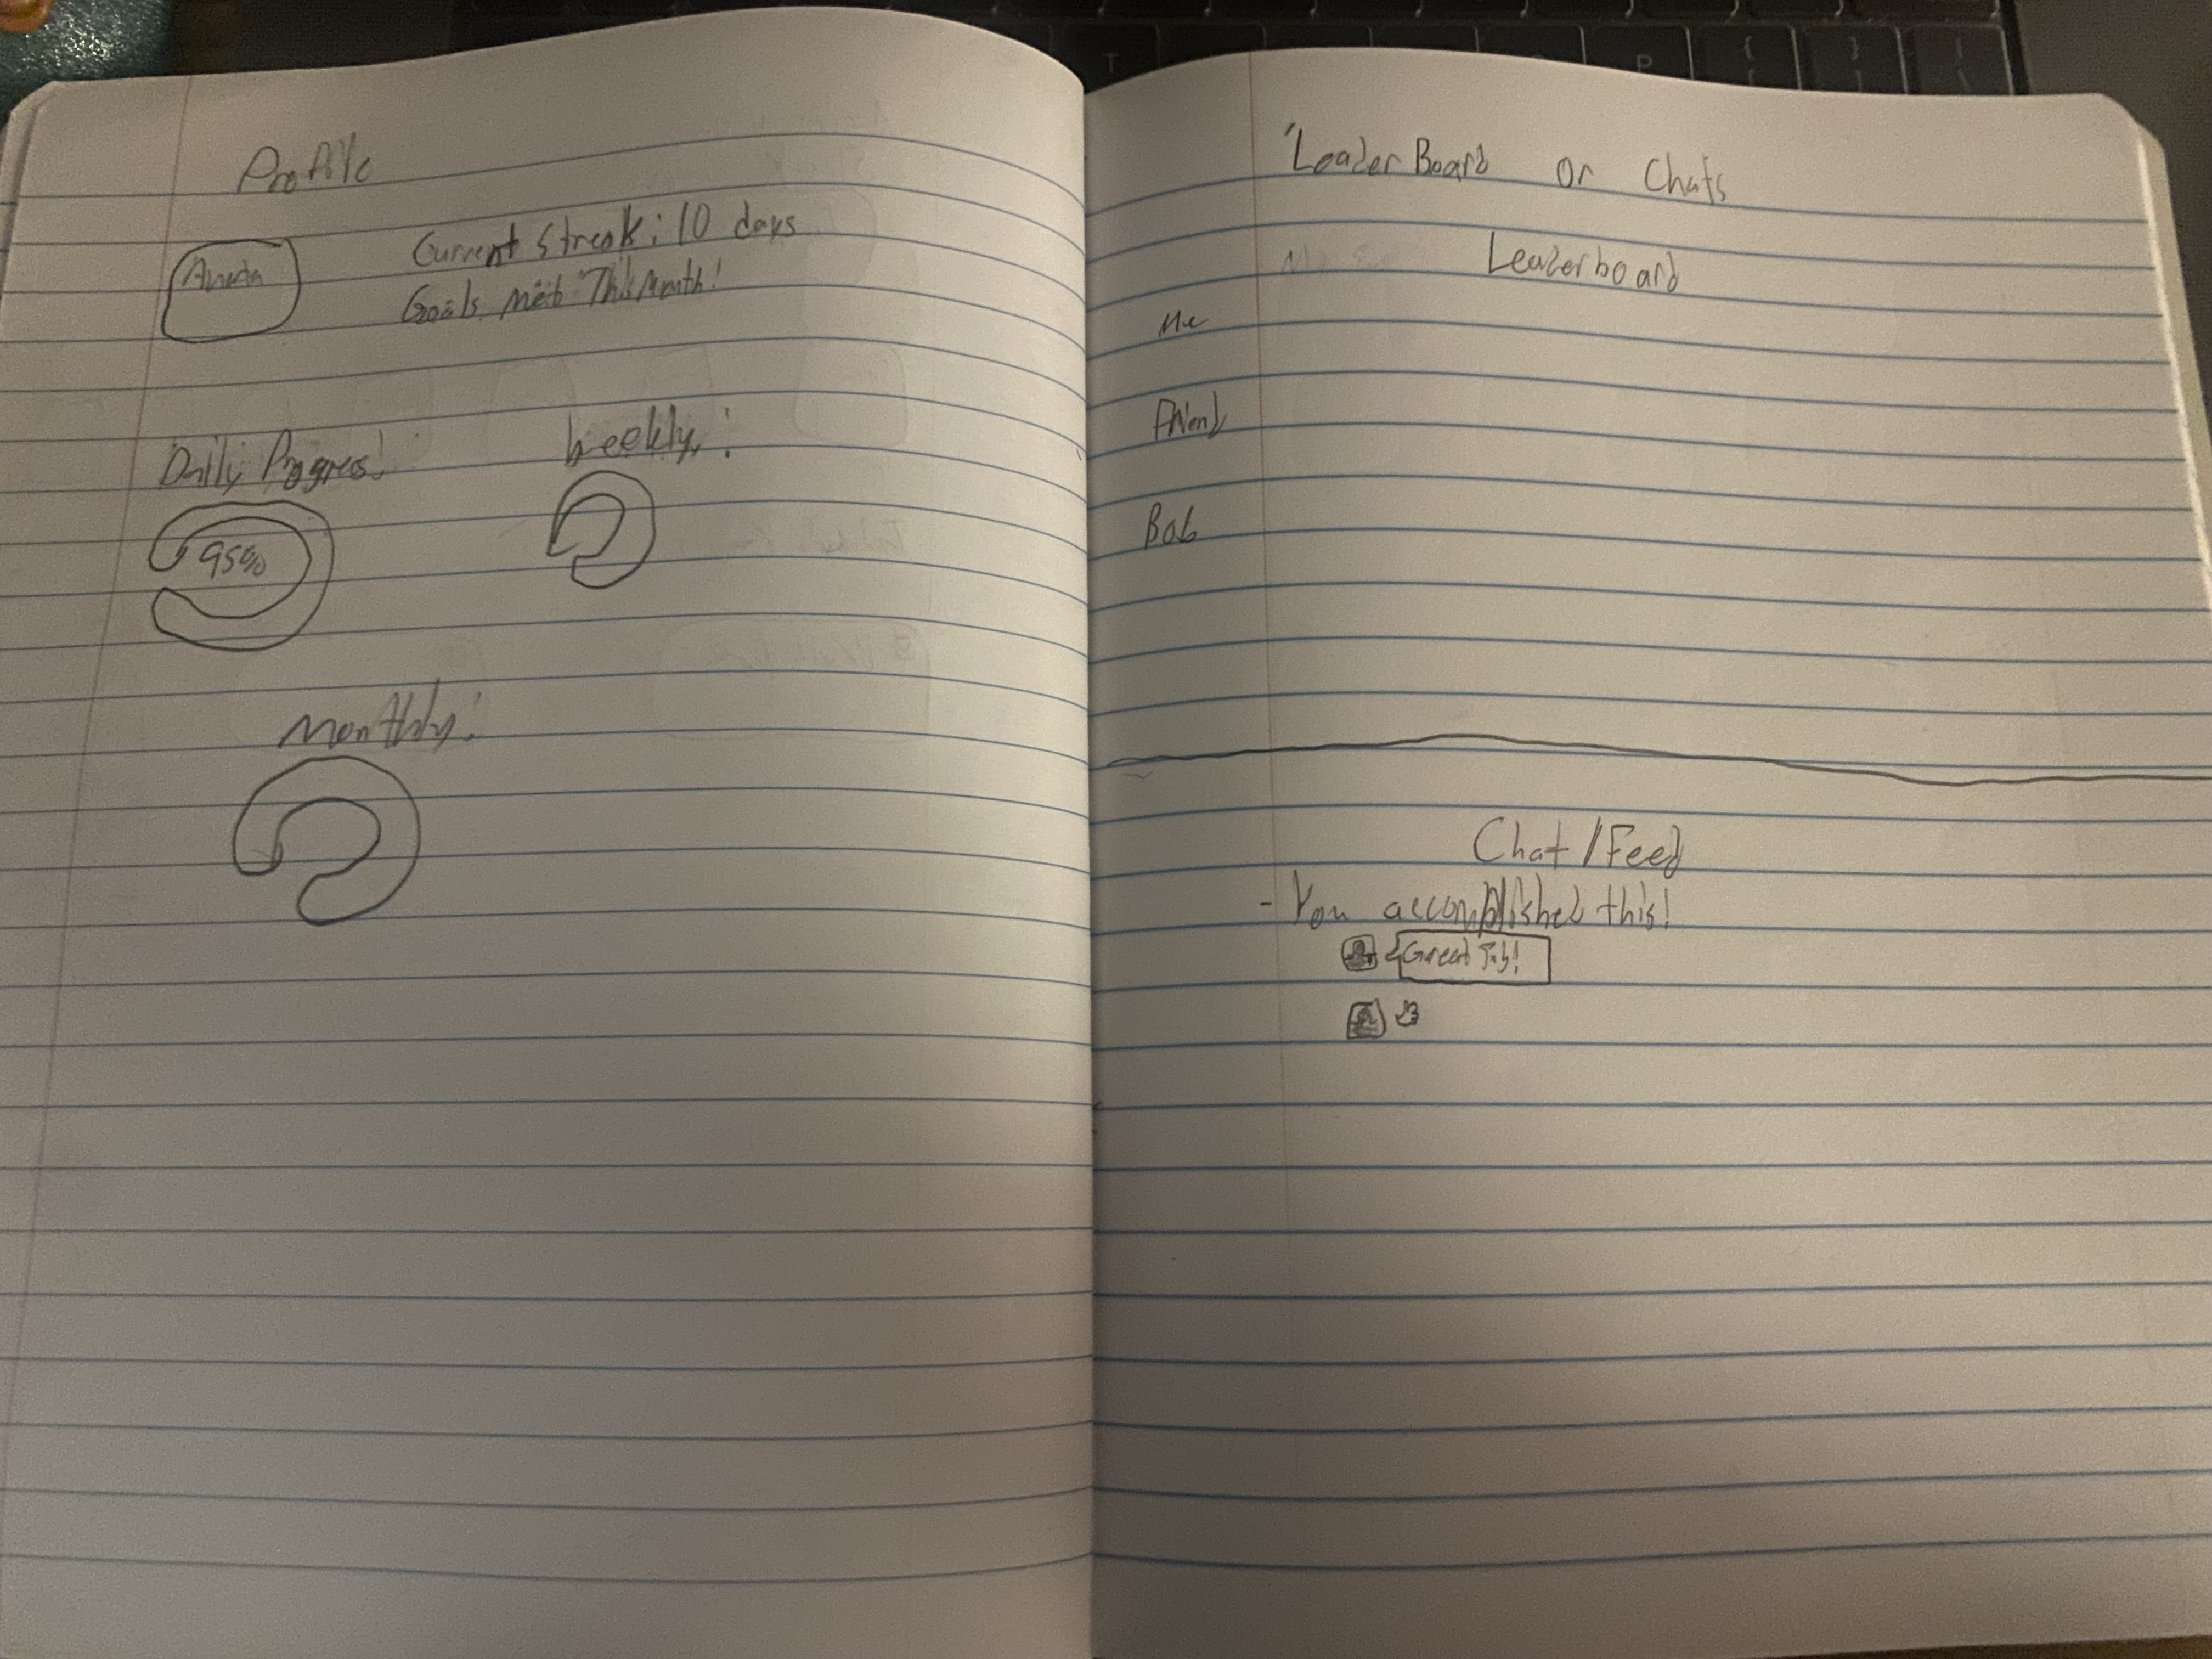 Profile
Current Streak: 10 days
Goals met This Month!
Daily Progress!
95%
Weekly:
Monthly:
Leader Board or Chats
Leaderboard
Me
Friend
Bob
Chat/Feed
- You accomplished this!
Great Job!
T
P
{
}
[
]